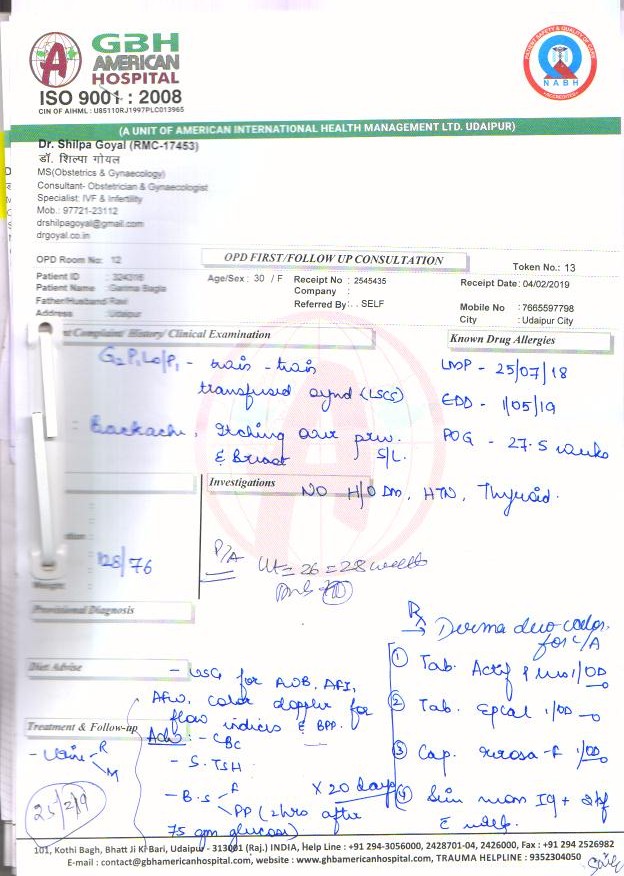 GBH
AMERICAN
HOSPITAL
ISO 9001 : 2008
CIN OF AIHML : U85110RJ1997PLC013965
PATIENT SAFETY & QUALITY OF CARE
NABH
ACCREDITED
(A UNIT OF AMERICAN INTERNATIONAL HEALTH MANAGEMENT LTD. UDAIPUR)
Dr. Shilpa Goyal (RMC-17453)
डॉ. शिल्पा गोयल
MS(Obstetrics & Gynaecology)
Consultant- Obstetrician & Gynaecologist
Specialist: IVF & Infertility
Mob.: 97721-23112
drshilpagoyal@gmail.com
drgoyal.co.in
OPD Room No: 12
OPD FIRST/FOLLOW UP CONSULTATION
Token No.: 13
Patient ID : 324316 Age/Sex : 30 / F Receipt No : 2545435 Receipt Date: 04/02/2019
Patient Name : Garima Bagla Company :
Father/Husband Ravi Referred By: . . SELF Mobile No : 7665597798
Address : Udaipur City : Udaipur City
Complaint/ History/ Clinical Examination Known Drug Allergies
G2P1L0/P1 - transfused synd (LSCS)
LMP - 25/07/18
EDD - 1/05/19
POG - 27.5 weeks
: Backache, Itching over
& Breast S/L.
Investigations
NO H/O DM, HTN, Thyroid.
128/76
P/A Ut = 26 = 28 weeks
Weight:
Provisional Diagnosis
Rx
→ Derma
for C/A
Diet Advise
- USG for AFI,
AFW, color doppler for
flow indices & BPP.
① Tab. 1/OD
② Tab. 1/OD
③ Cap. 1/OD
④
Treatment & Follow-up
- Urine - R
M
Adv :- CBC
- S. TSH
- B.S - F
PP (2hrs after
75 gm glucose)
X 20 days
25/2/19
101, Kothi Bagh, Bhatt Ji Ki Bari, Udaipur - 313001 (Raj.) INDIA, Help Line : +91 294-3056000, 2428701-04, 2426000, Fax : +91 294 2526982
E-mail : contact@gbhamericanhospital.com, website : www.gbhamericanhospital.com, TRAUMA HELPLINE : 9352304050